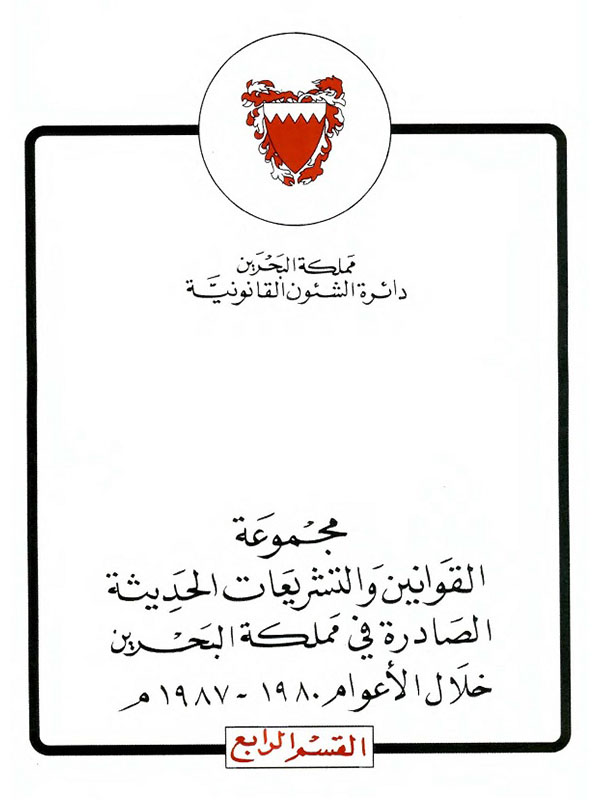 مَملكة البَحْرَين
دائرة الشئون القانونيَّة
مجْموعَة
القَوانين وَالتشريعَات الحَدِيثة
الصَادرة في مَملكة البَحْرين
خلَال الأعوام ١٩٨٠ - ١٩٨٧ م
القسْم الرابع